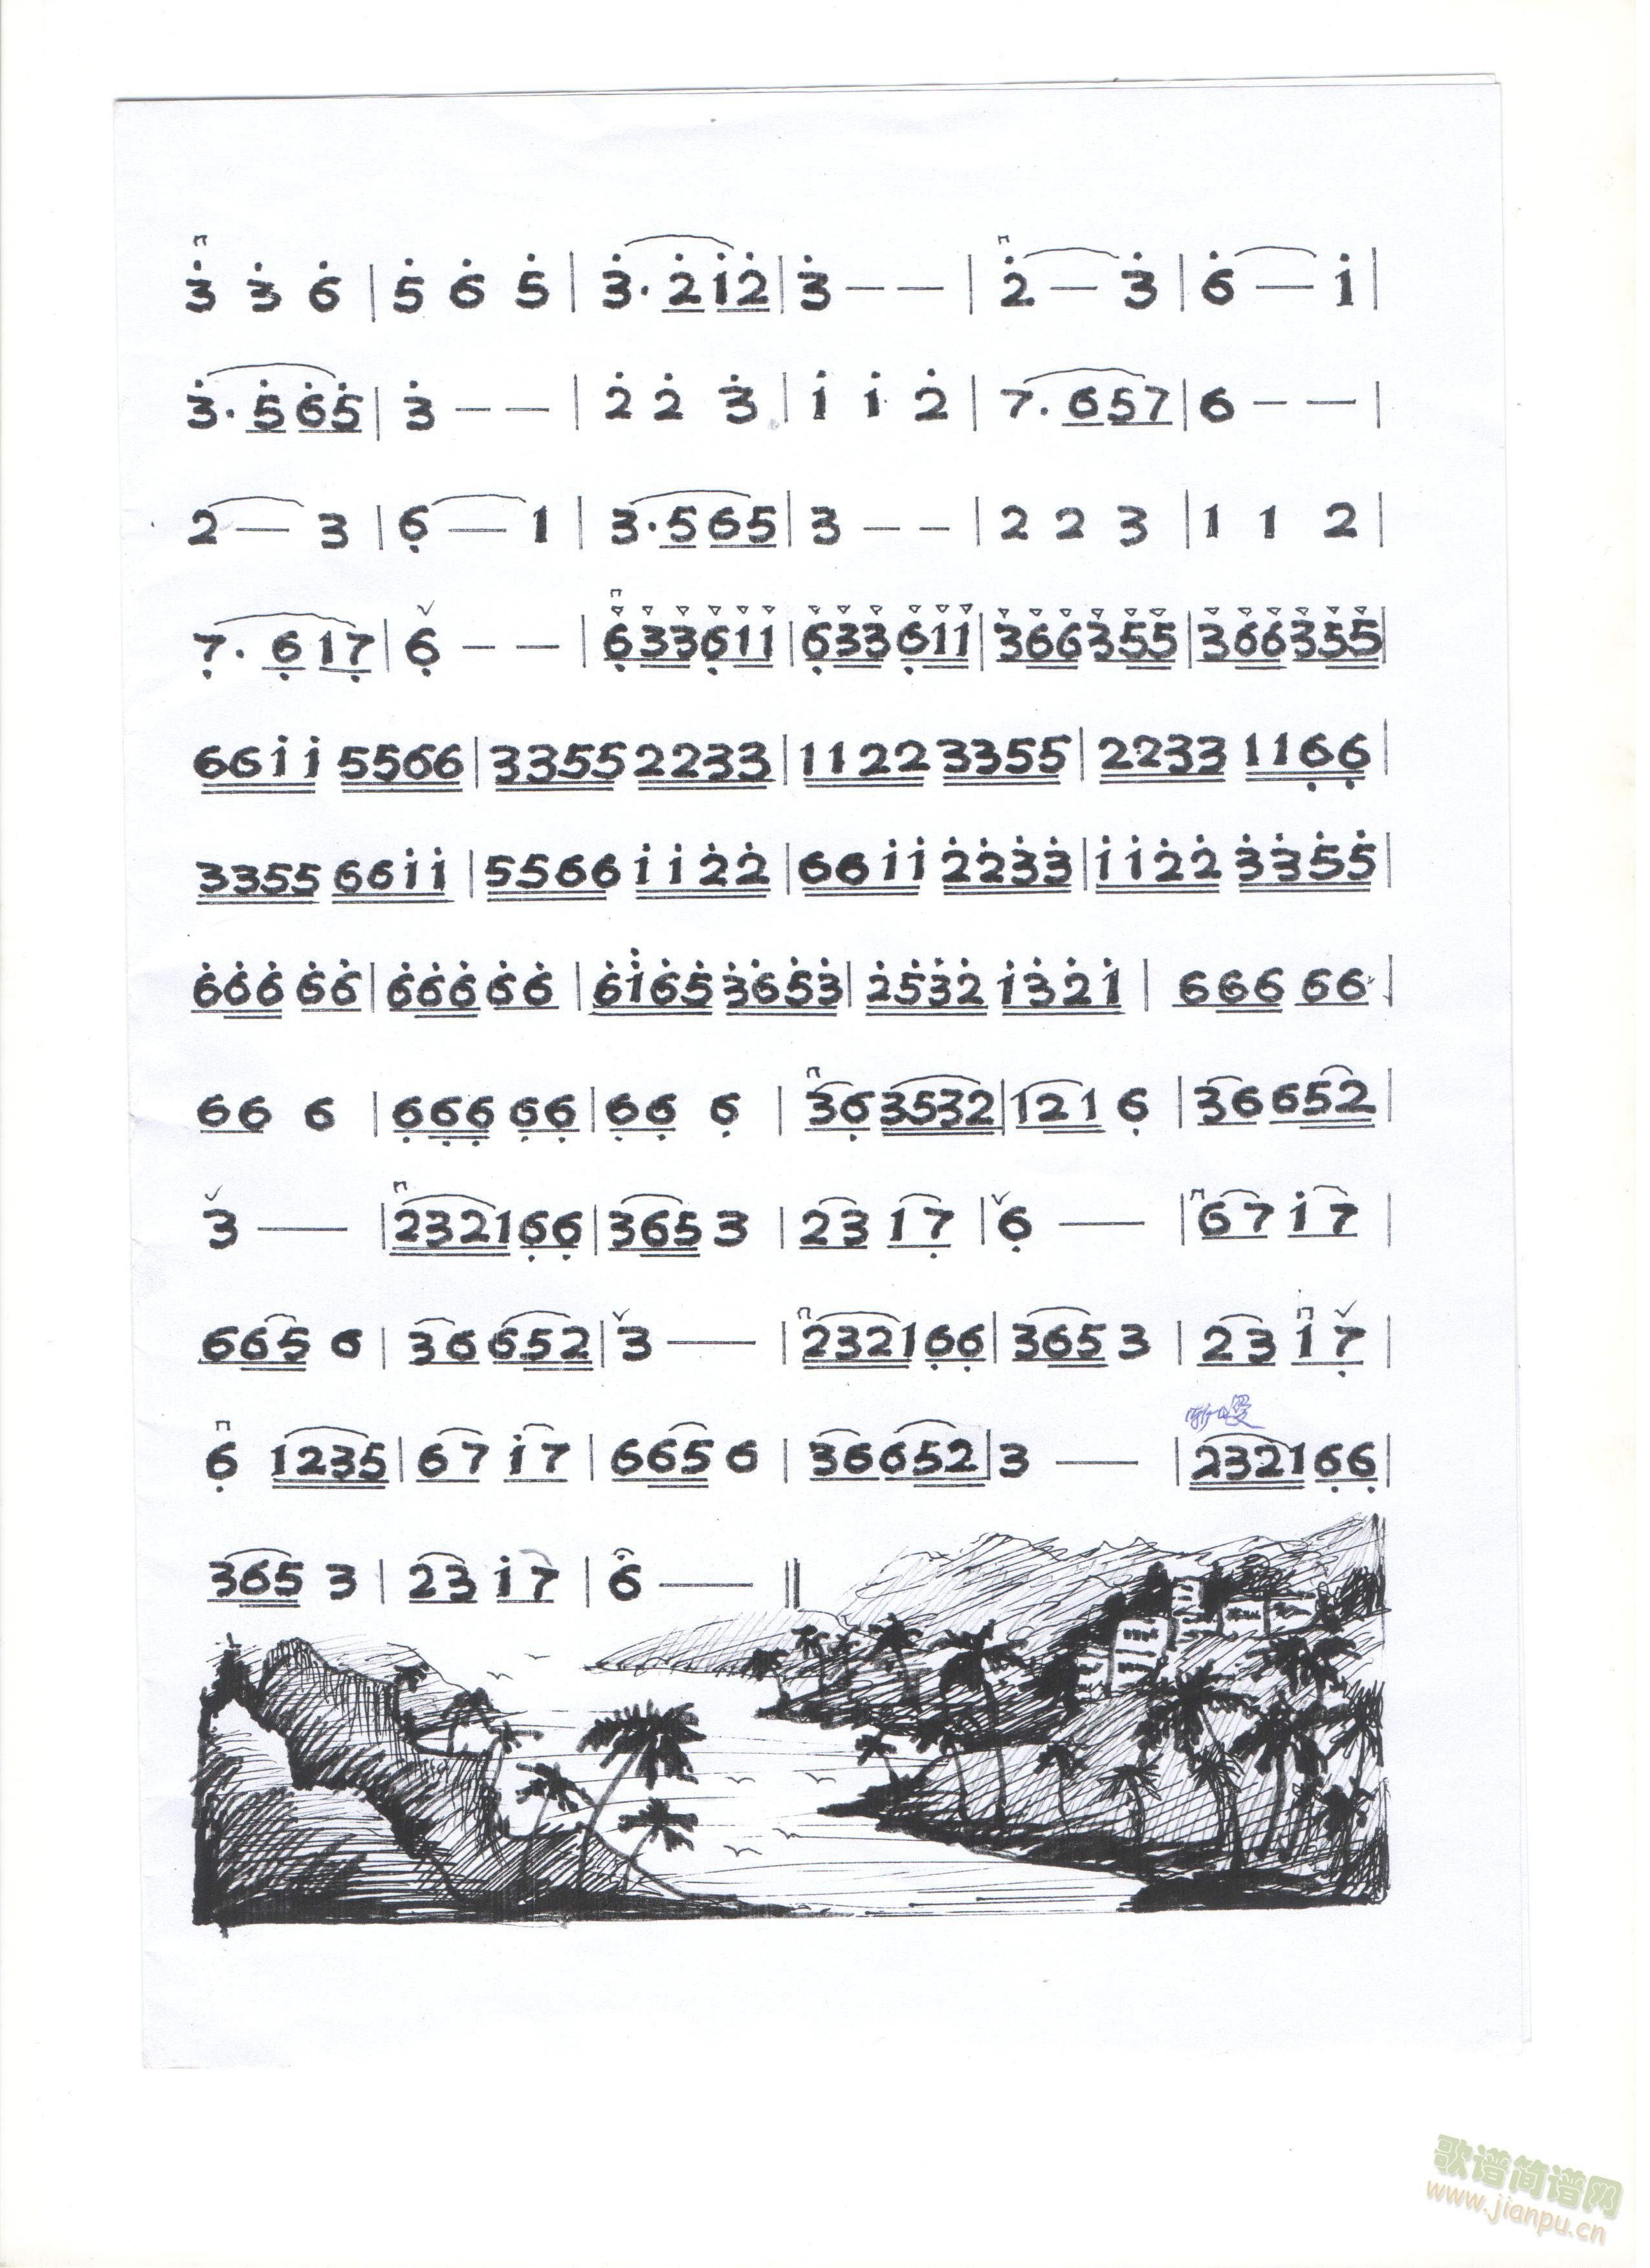 3̇ 3̇ 6̇ | 5̇ 6̇ 5̇ | 3̇· 2̇ 1̇2̇ | 3̇ — — | 2̇ — 3̇ | 6̇ — 1̇ |
3̇· 5̇ 6̇5̇ | 3̇ — — | 2̇ 2̇ 3̇ | 1̇ 1̇ 2̇ | 7· 6 57 | 6 — — |
2 — 3 | 6̣ — 1 | 3· 5 65 | 3 — — | 2 2 3 | 1 1 2 |
7̣· 6̣ 17̣ | 6̣ — — | 6̣336̣11 | 6̣336̣11 | 366355 | 366355 |
661̇1̇ 5566 | 3355 2233 | 1122 3355 | 2233 116̣6̣ |
3355 661̇1̇ | 5566 1̇1̇2̇2̇ | 661̇1̇ 2̇2̇3̇3̇ | 1̇1̇2̇2̇ 3̇3̇5̇5̇ |
6̇6̇6̇ 6̇6̇ | 6̇6̇6̇ 6̇6̇ | 6̇1̇6̇5̇ 3̇6̇5̇3̇ | 2̇5̇3̇2̇ 1̇3̇2̇1̇ | 666 66 |
66 6 | 6̣6̣6̣ 6̣6̣ | 6̣6̣ 6̣ | 36̣ 3532 | 121 6̣ | 36 652 |
3 — | 23216̣6̣ | 365 3 | 23 17̣ | 6̣ — | 67 1̇7 |
665 6 | 36 652 | 3 — | 23216̣6̣ | 365 3 | 23 1̇7̣ |
6̣ 1235 | 67 1̇7 | 665 6 | 36 652 | 3 — | 23216̣6̣ |
渐慢
365 3 | 23 1̇7 | 6 — ‖
歌谱简谱网
www.jianpu.cn